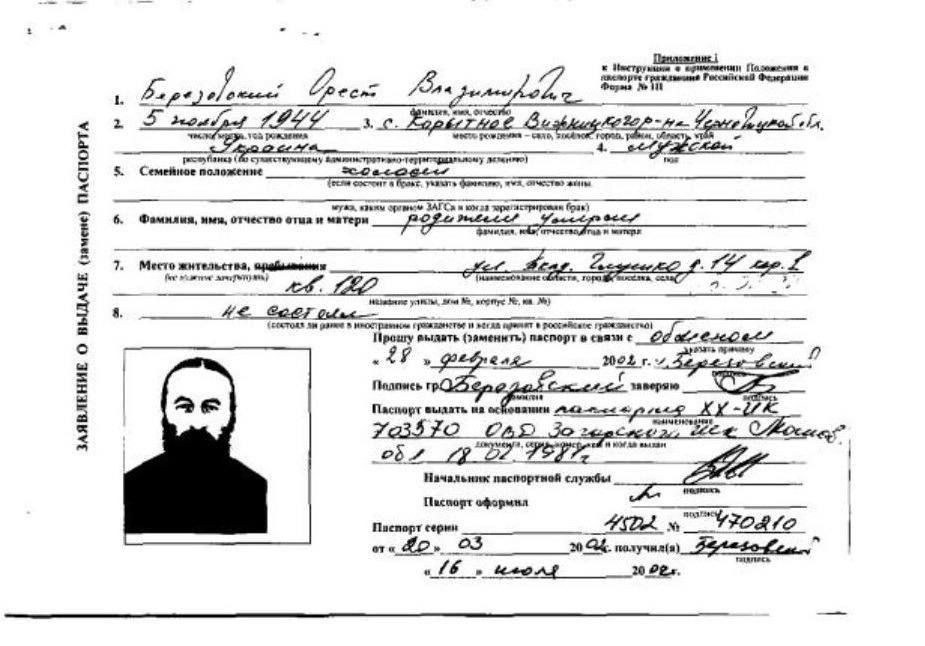 Приложение 1
к Инструкции о применении Положения о
паспорте гражданина Российской Федерации
Форма № 1П
ЗАЯВЛЕНИЕ О ВЫДАЧЕ (замене) ПАСПОРТА
1. Березовский Орест Владимирович
фамилия, имя, отчество
2. 5 ноября 1944 3. с. Корытное Вижницкого р-на Черновицкой обл.
число, месяц, год рождения место рождения – село, посёлок, город, район, область, край
Украина 4. мужской
республика (по существующему административно-территориальному делению) пол
5. Семейное положение холост
(если состоит в браке, указать фамилию, имя, отчество жены
мужа, каким органом ЗАГСа и когда зарегистрирован брак)
6. Фамилия, имя, отчество отца и матери родители умерли
фамилия, имя, отчество отца и матери
7. Место жительства, пребывания ул. Акад. Глушко д. 14 кор. 1
(не нужное зачеркнуть) (наименование области, города, поселка, села)
кв. 120
название улицы, дом №, корпус №, кв. №)
8. не состоял
(состоял ли ранее в иностранном гражданстве и когда принят в российское гражданство)
Прошу выдать (заменить) паспорт в связи с обменом
указать причину
« 28 » февраля 2002 г. Березовский
подпись
Подпись гр. Березовский заверяю
фамилия подпись
Паспорт выдать на основании паспорта XX-ИК
наименование
703570 ОВД Загорского
документа, серия, номер, кем и когда выдан
обл 18 02 1981г
Начальник паспортной службы
подпись
Паспорт оформил
подпись
Паспорт серии 4502 № 470210
от « 20 » 03 2002г. получил(а) Березовский
подпись
« 16 » июля 2002г.